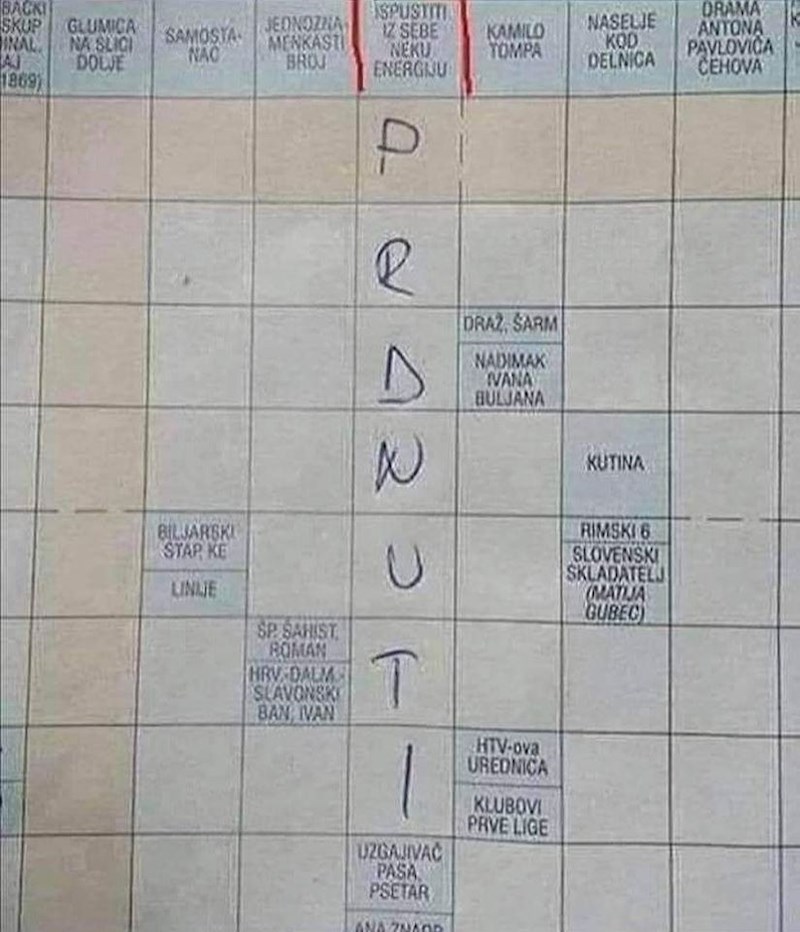 BAČKI
SKUP
1869)
GLUMICA
NA SLICI
DOLJE
SAMOSTA-
NAC
JEDNOZNA-
MENKASTI
BROJ
ISPUSTITI
IZ SEBE
NEKU
ENERGIJU
KAMILO
TOMPA
NASELJE
KOD
DELNICA
DRAMA
ANTONA
PAVLOVIČA
ČEHOVA
P
R
DRAŽ, ŠARM
NADIMAK
IVANA
BULJANA
D
N
KUTINA
BILJARSKI
ŠTAP, KE
LINIJE
U
RIMSKI 6
SLOVENSKI
SKLADATELJ
(MATIJA
GUBEC)
ŠP. ŠAHIST,
ROMAN
HRV.-DALM.-
SLAVONSKI
BAN, IVAN
T
I
HTV-ova
UREDNICA
KLUBOVI
PRVE LIGE
UZGAJIVAČ
PASA,
PSETAR